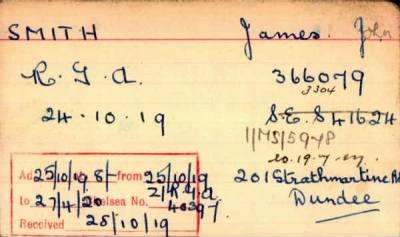 SMITH James. John
R. G. A. 366079
3304
24.10.19 S.E.S 41624
11/MS/5978
20.19.7.
Ad 25/10/19 8/- from 25/10/19
2/R.G.A.
to 27/4/20 Chelsea No. 40397
Received 25/10/19
201 Strathmartine Rd
Dundee